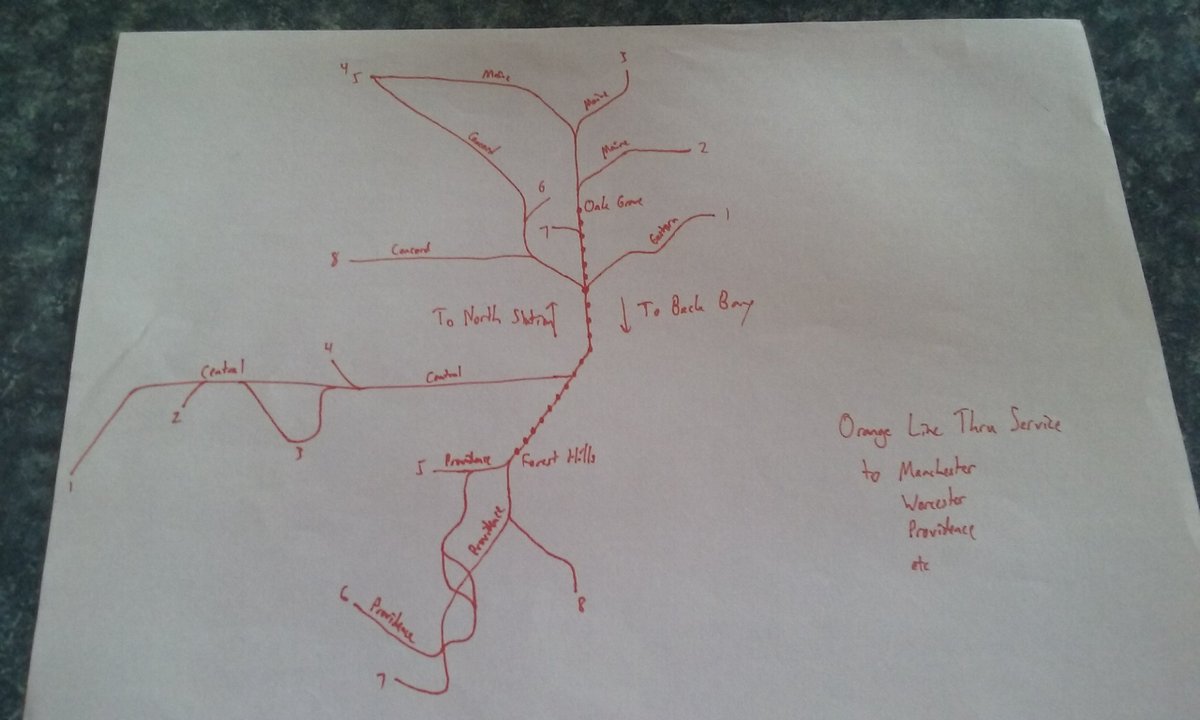 3
4 5
Maine
Maine
Concord
Maine
2
6
Oak Grove
1
7
Eastern
Concord
8
To North Station
To Back Bay
4
Central
Central
2
3
1
Orange Line Thru Service
to Manchester
Worcester
Providence
etc
Forest Hills
5
Providence
Providence
8
6
Providence
7